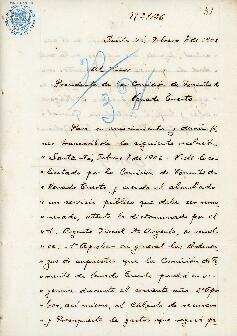 Nº 1026
31
Santa Fé, Febrero 7 de 1906
Al Señor
Presidente de la Comisión de Fomento de
Venado Tuerto
Para su conocimiento y
nes transcríbole la siguiente
"Santa Fé, Febrero 7 de 1906 - Visto lo so-
licitado por la Comisión de Fomento de
Venado Tuerto y siendo el alumbrado
un servicio público que debe ser remu-
nerado, atento lo dictaminado por el
Fiscal de
se - 1º Apruébase en general las Ordenan-
zas de impuestos que la Comisión de Fo-
mento de Venado Tuerto pondrá en vi-
gencia durante el corriente año. 2º Aprué-
base, asimismo, el Cálculo de recursos
y Presupuesto de gastos que regirá